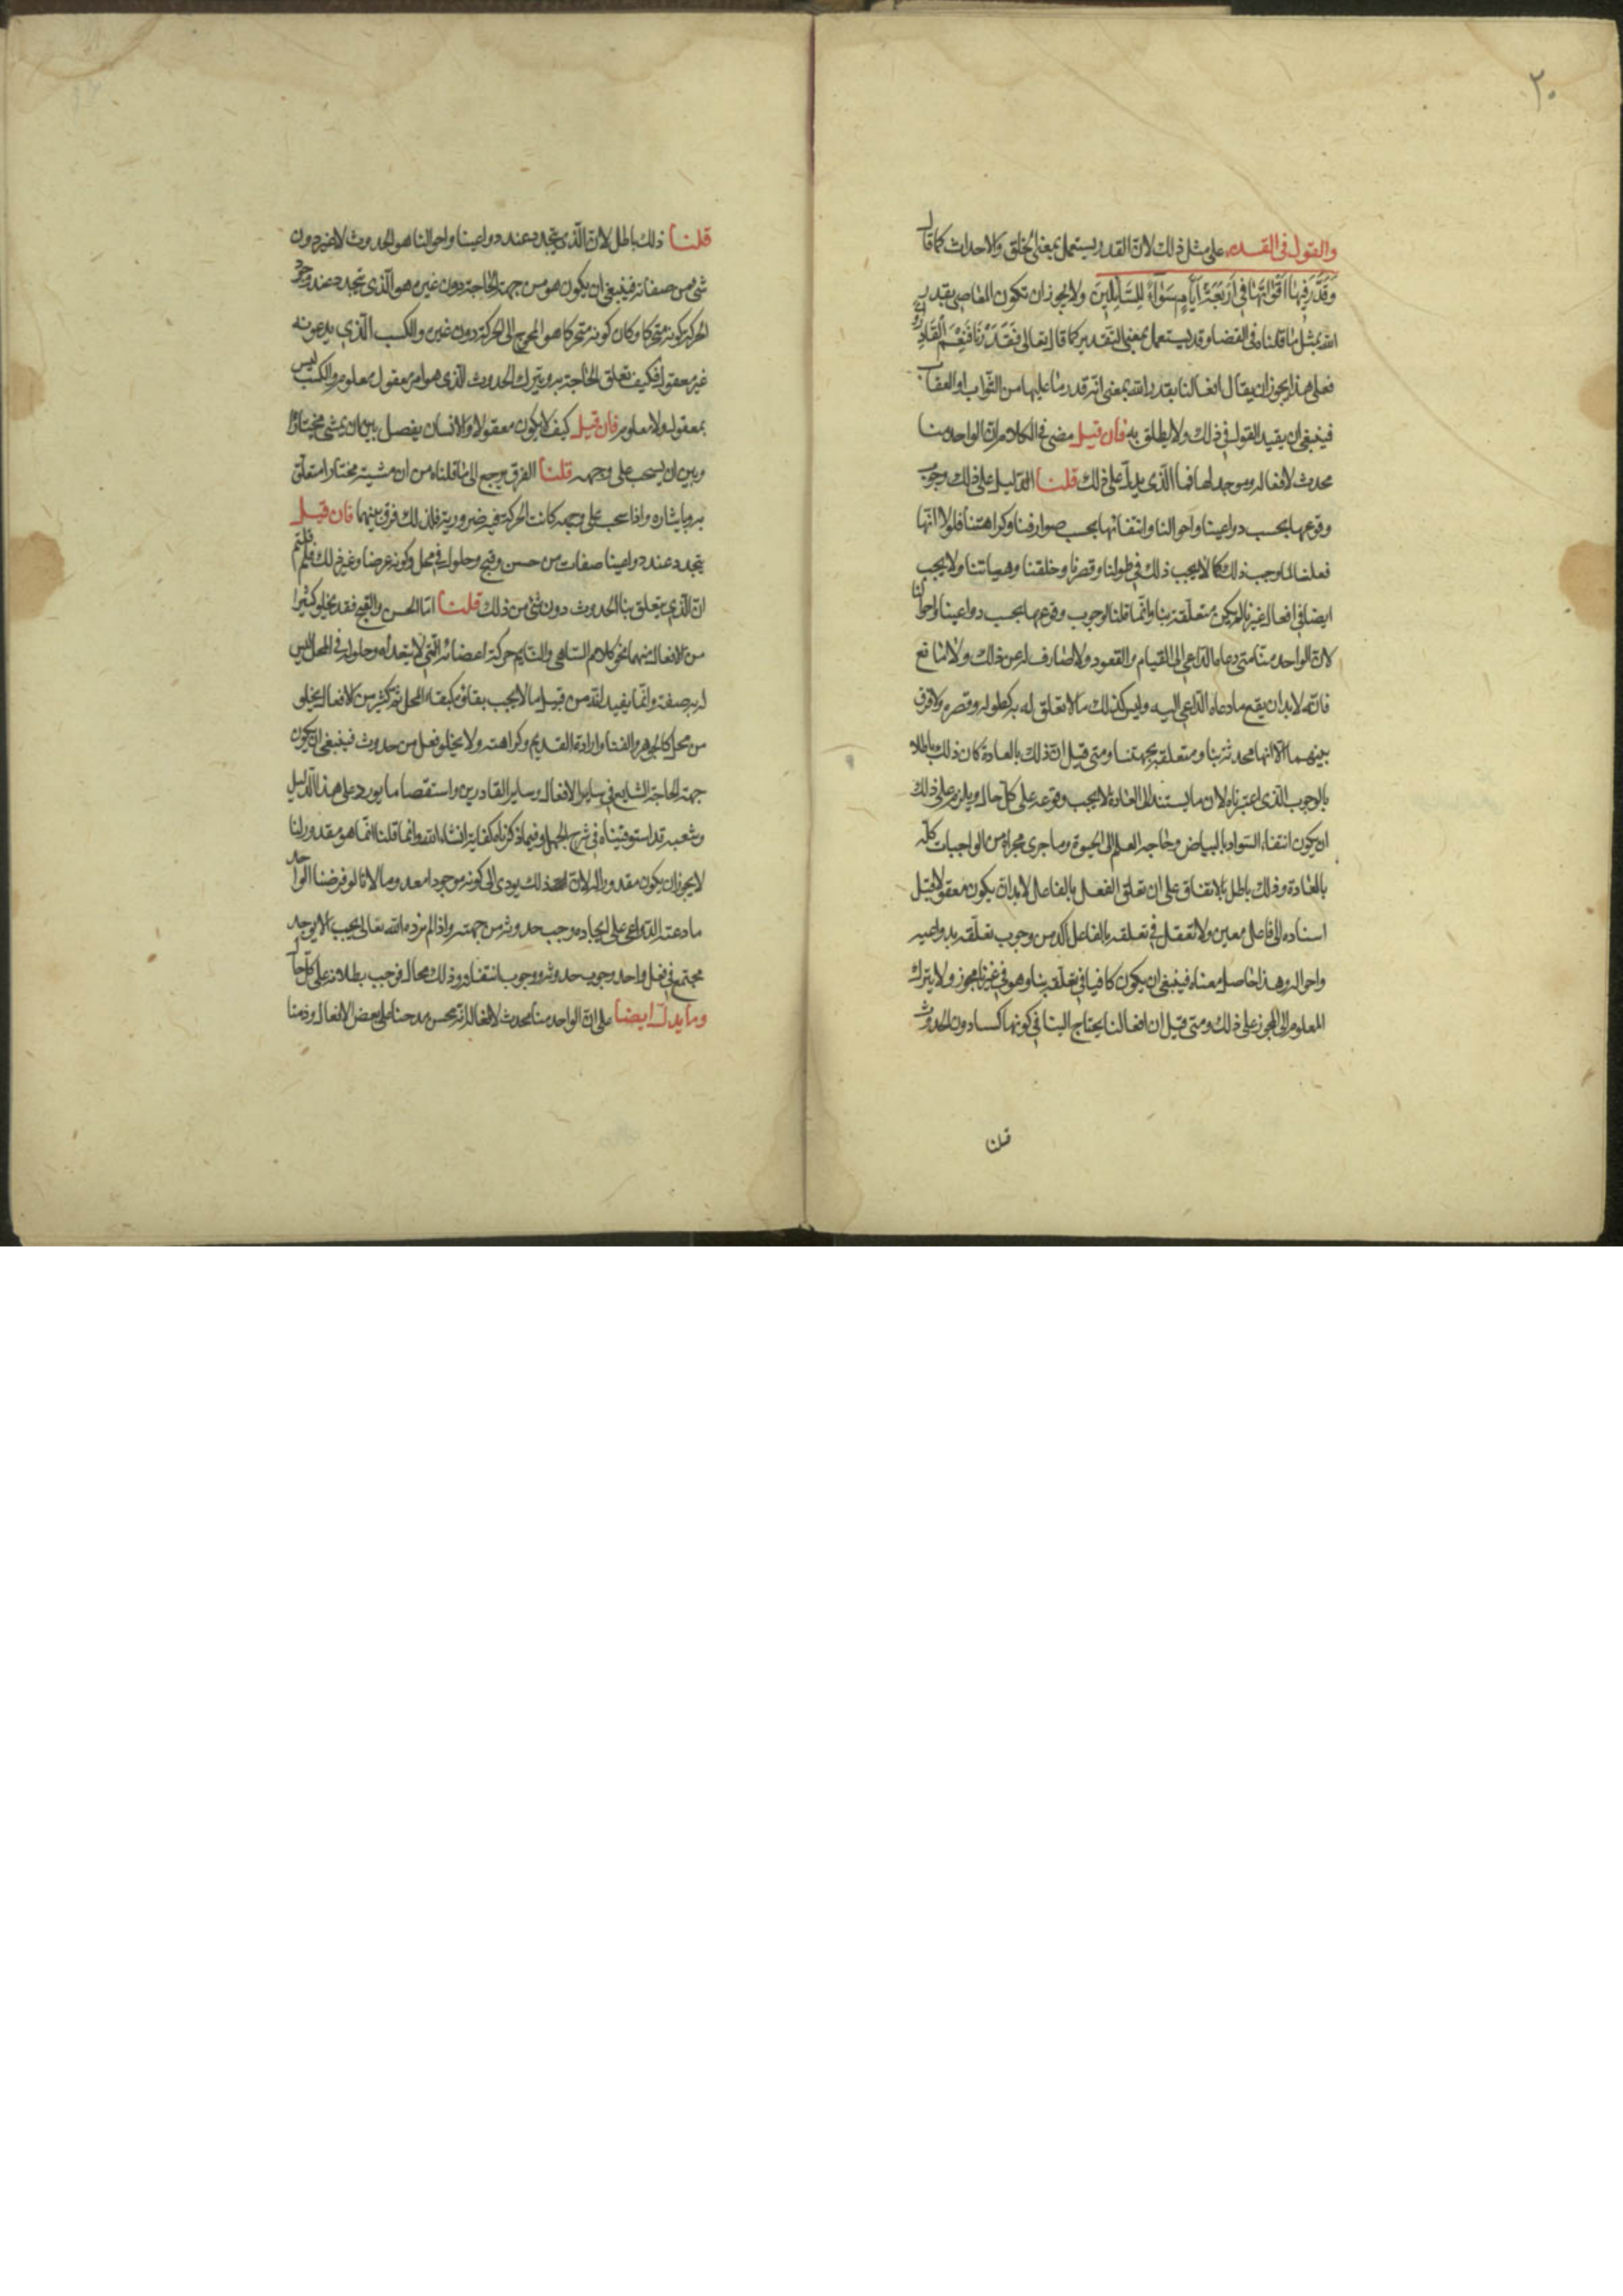 ٢٠
والقول في القدر على مثل ذلك لان القدر يستعمل بمعنى الخلق والاحداث كما قال
وَقَدَّرَ فِيهَا أَقْوَاتَهَا فِي أَرْبَعَةِ أَيَّامٍ سَوَاءً لِلسَّائِلِينَ ولا يجوز ان تكون المعاصي بقدر
الله بمثل ما قلناه في القضا وقد يستعمل بمعنى التقدير كما قال تعالى فَقَدَّرْنَا فَنِعْمَ الْقَادِرُونَ
فعلى هذا يجوز ان يقال افعالنا بقدر الله بمعنى انه قدر ما عليها من الثواب او العقاب
فينبغي ان يقيد القول في ذلك ولا يطلق به فان قيل مضى في الكلام ان الواحد منا
محدث لافعاله وموجد لها فما الذي يدل على ذلك قلنا الدليل على ذلك وجوب
وقوعها بحسب دواعينا واحوالنا وانتفائها بحسب صوارفنا وكراهتنا فلولا انها
فعلنا لما وجب ذلك كما لا يجب ذلك في طولنا وقصرنا وخلقنا وهيئاتنا ولا يجب
ايضا في افعال غيرنا لم يكن متعلقة بنا وانما قلنا لوجوب وقوعها بحسب دواعينا واحوالنا
لان الواحد منا متى دعاه الداعي الى القيام والقعود ولا صارف له عن ذلك ولا مانع
فانه لا بد ان يقع ما دعاه الداعي اليه وليس كذلك ما لا تعلق له به كطوله وقصره ولا فرق
بينهما الا انها محدثة بنا ومتعلقة بجهتنا ومتى قيل ان ذلك بالعادة كان ذلك باطلا
بالوجوب الذي اعتبرناه لان ما يستند الى العادة لا يجب وقوعه على كل حال ويلزم على ذلك
ان يكون انتفاء السواد بالبياض وحاجه العلم الى الحيوة وما جرى مجراه من الواجبات كله
بالعادة وذلك باطل بالاتفاق على ان تعلق الفعل بالفاعل لا بد ان يكون معقولا قبل
اسناده الى فاعل معين ولا تعقل في تعلقه بالفاعل اكد من وجوب تعلقه بدواعيه
واحواله وهذا حاصل معناه فينبغي ان يكون كافيا في تعلقه بنا وهو في غيرنا مجوز ولا يترك
المعلوم الى المجوز على ذلك ومتى قيل ان افعالنا يحتاج الينا في كونها كسبا دون الحدوث
قلنا
قلنا ذلك باطل لان الذي يتجدد عند دواعينا واحوالنا هو الحدوث لا غير دون
شيء من صفاته فينبغي ان يكون هو من جهة الحاجة دون غيره هو الذي تجدد عند وجود
الحركة كونه متحركا وكان كونه متحركا هو المحوج الى الحركة دون غيره والكسب الذي يدعونه
غير معقول فكيف تعلق الحاجة به ويترك الحدوث الذي هو امر معقول معلوم والكسب ليس
بمعقول ولا معلوم فان قيل كيف لا يكون معقولا والانسان يفصل بين ان يمشي مختارا
وبين ان يسحب على وجهه قلنا الفرق يرجع الى ما قلناه من ان مشيته مختارا متعلق
به وبايثاره واذا سحب على وجهه كانت الحركة فيه ضرورية فلذلك فرق بينهما فان قيل
يتجدد عند دواعينا صفات من حسن وقبح وحلول في محل وكونه عرضا وغير ذلك فلم قلتم
ان الذي يتعلق بنا الحدوث دون شيء من ذلك قلنا اما الحسن والقبح فقد يخلو كثيرا
من الافعال منهما نحو كلام الساهي والنايم حركة اعضائه التي لا يتعداه وحلوله في المحل ليس
له به صفة وانما يفيد انه من قبيل ما لا يجب بقاؤه كبقاء المحل ثم كثير من الافعال يخلو
من محل كالجوهر والفنا وارادة القديم وكراهته ولا يخلو فعل من حدوث فينبغي ان يكون
جهة الحاجة الشايع في ساير الافعال وساير القادرين واستقصا ما يورد على هذا الدليل
وشعبه قد استوفيناه في شرح الجمل وفيما ذكرناه كفاية انشاء الله وانما قلنا انما هو مقدور لنا
لا يجوز ان يكون مقدورا له لان ذلك يودي الى كونه موجودا معدوما لانا لو فرضنا الواحد
ما دعته الدواعي على ايجاده وجب حدوثه من جهته واذا لم يرده الله تعالى يجب الا يوجد
مجتمع في فعل واحد وجوب حدوثه ووجوب انتفاؤه وذلك محال فوجب بطلانه على كل حال
وما يدل ايضا على ان الواحد منا محدث لافعاله انه يحسن مدحنا على بعض الافعال وذمنا